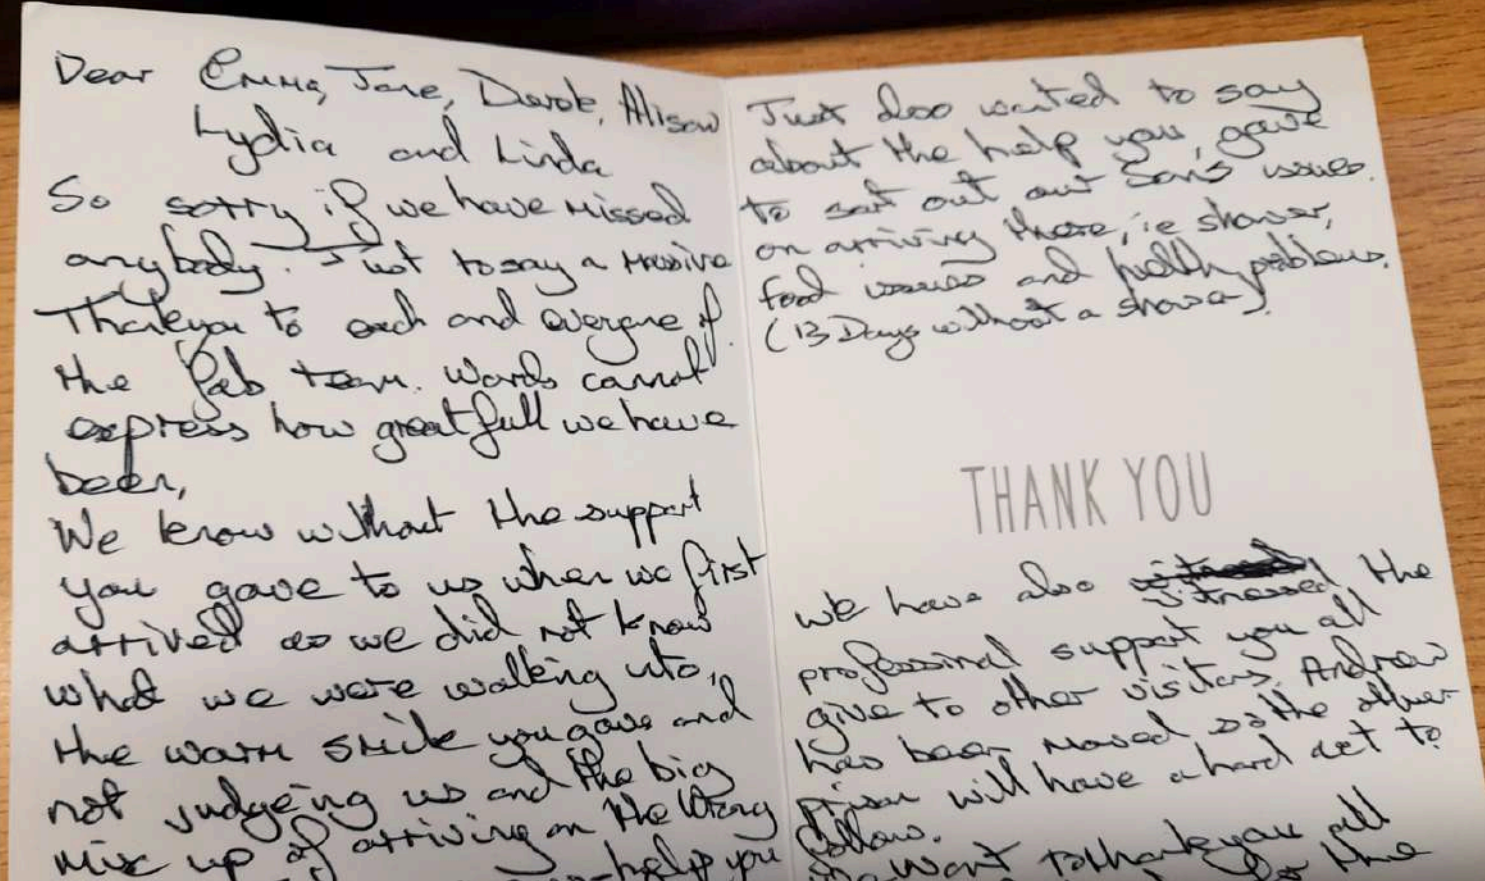 Dear Emma, Jane, Derek, Alison
Lydia and Linda
So sorry if we have missed
anybody. Just to say a massive
Thankyou to each and everyone of
the fab team. Words cannot
express how greatfull we have
been,
We know without the support
you gave to us when we first
arrived as we did not know
what we were walking into,
the warm smile you gave and
not judgeing us and the big
mix up of arriving on the wrong
help you
Just also wanted to say
about the help you gave
to sort out our Son's issues.
on arriving there, ie shower,
food issues and health problems.
(13 Days without a shower).
THANK YOU
We have also witnessed the
professional support you all
give to other visitors. Andrew
has been moved so the other
prison will have a hard act to
follow.
Want to thankyou all
the